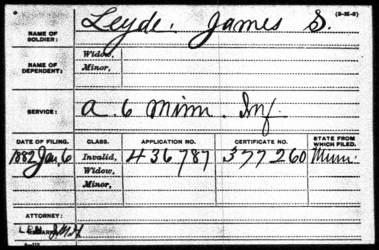 Leyde, James S.
(3-25-3)
NAME OF SOLDIER:
NAME OF DEPENDENT:
Widow,
Minor,
SERVICE:
A. 6 Minn. Inf.
DATE OF FILING. CLASS. APPLICATION NO. CERTIFICATE NO. STATE FROM WHICH FILED.
1882 Jan, 6 Invalid, 436787 377260 Minn.
Widow,
Minor,
ATTORNEY: